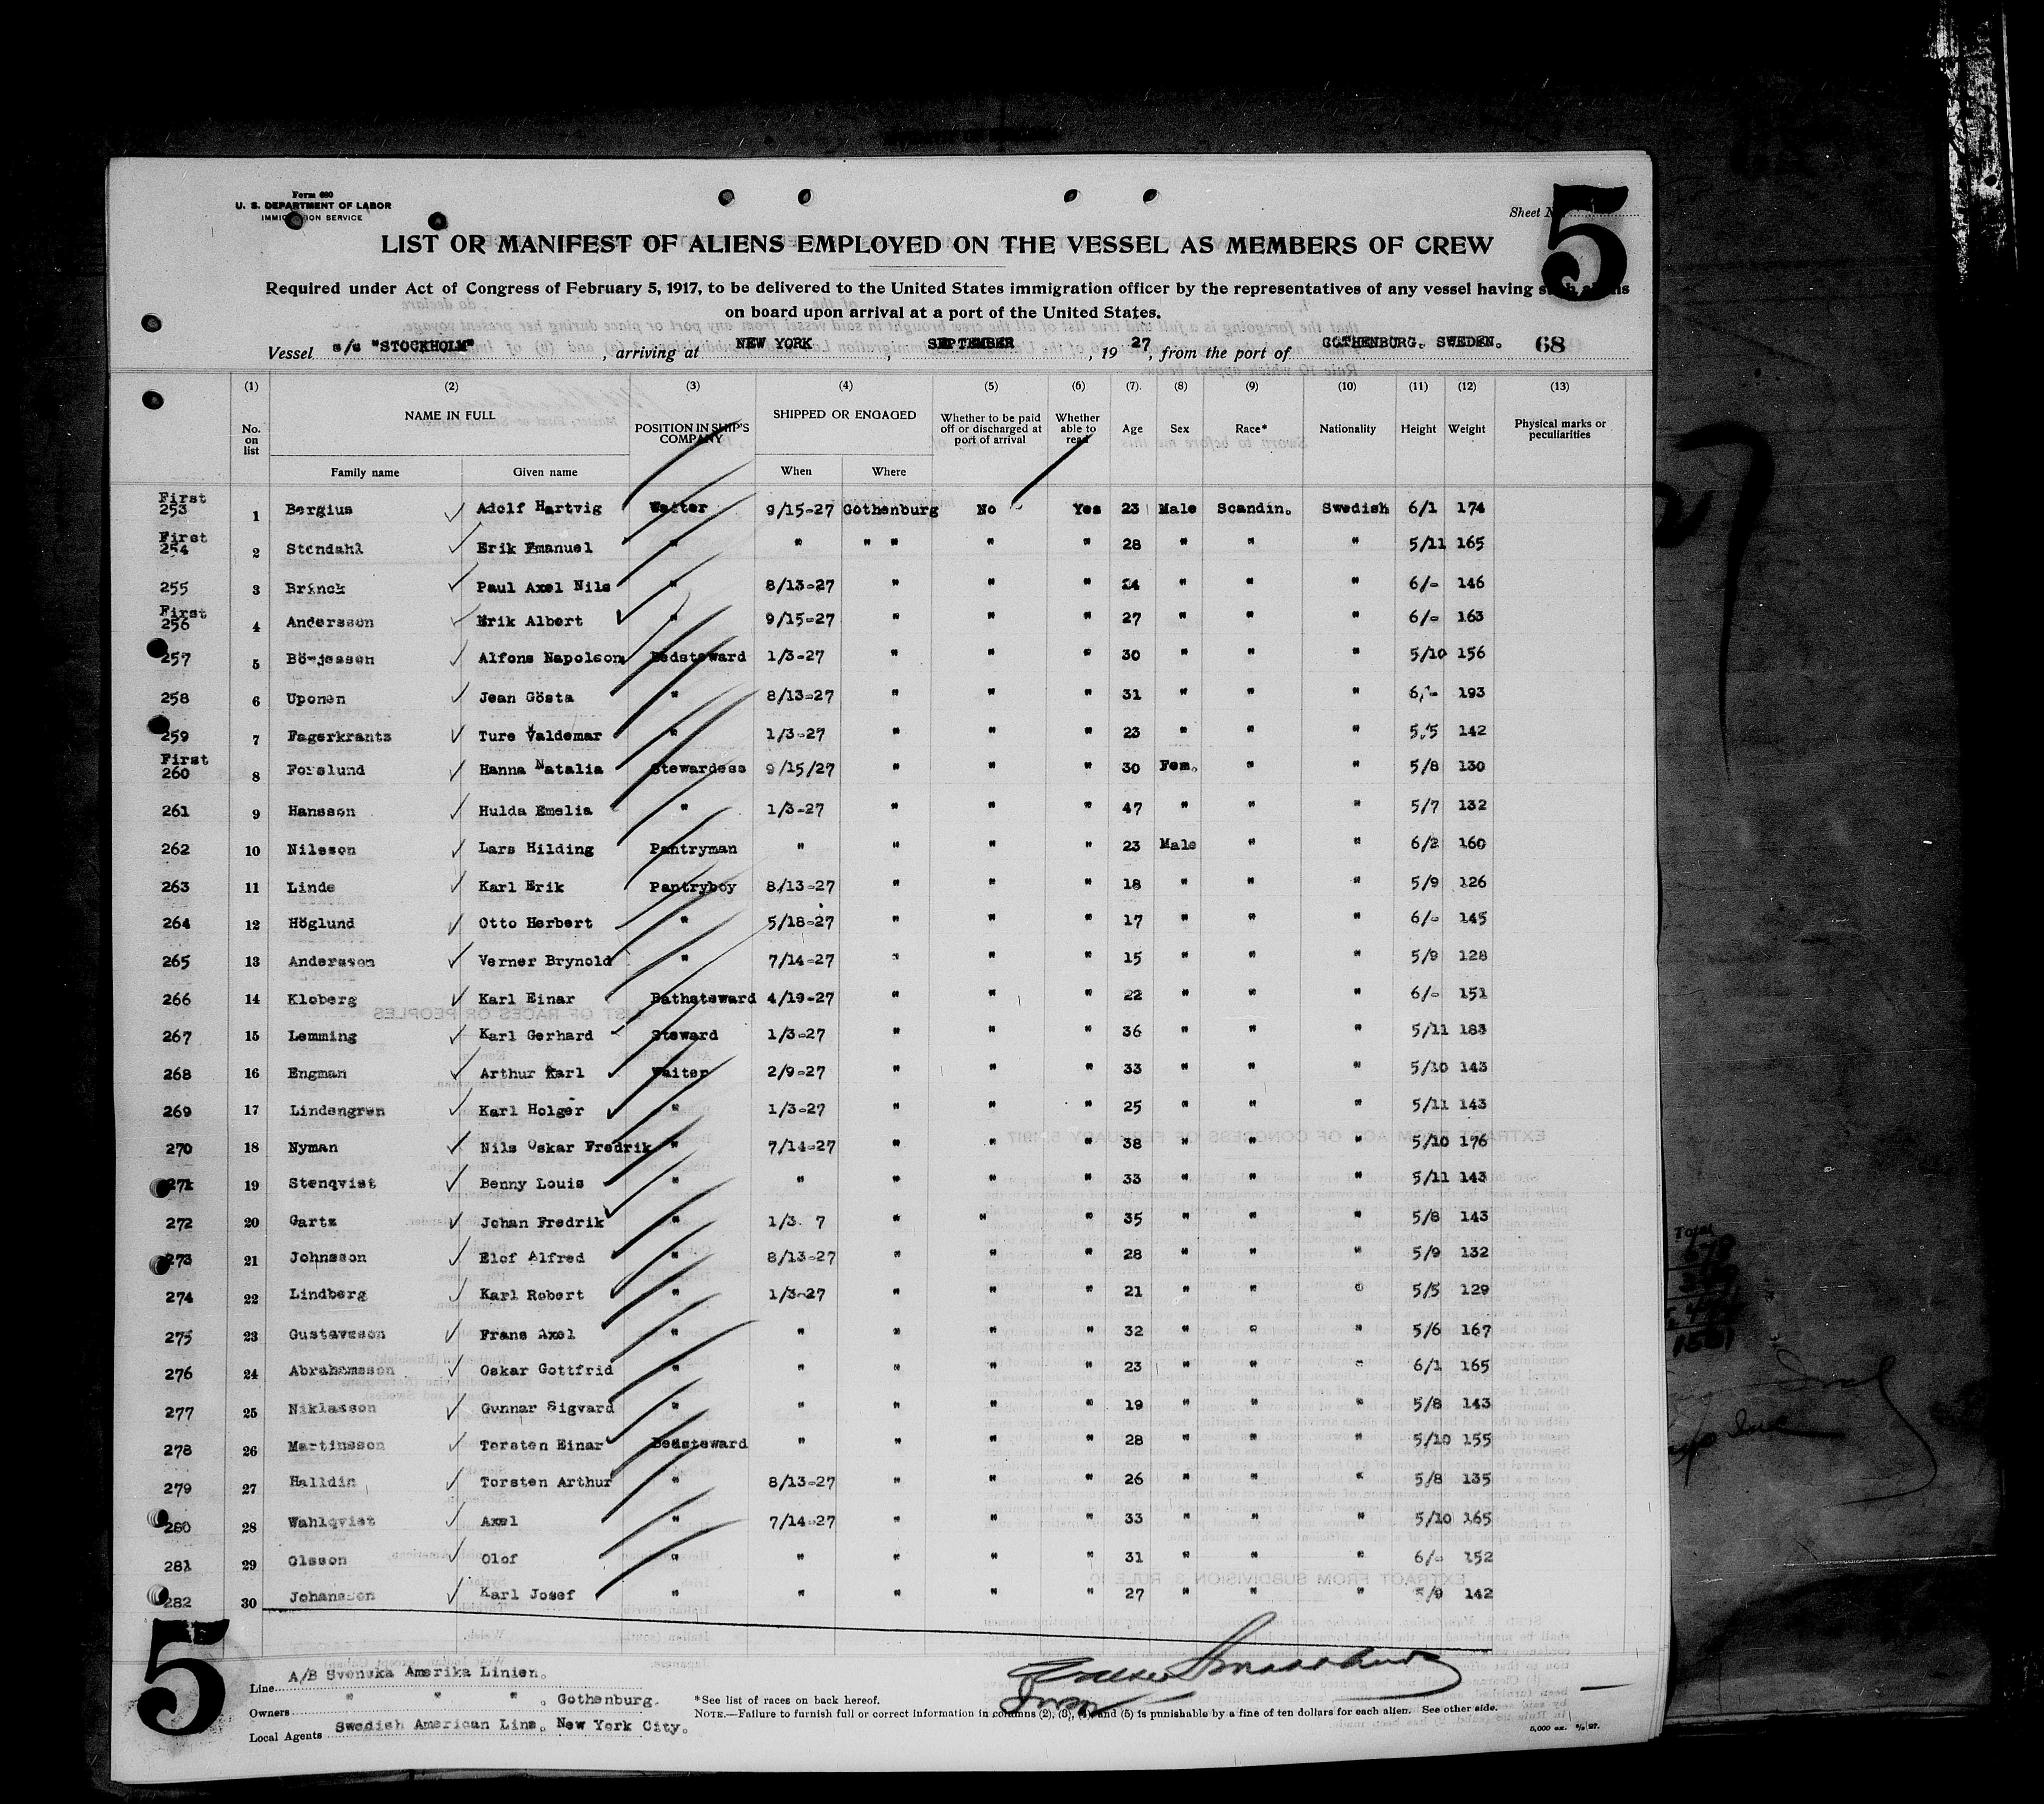 Form 680
U. S. DEPARTMENT OF LABOR
IMMIGRATION SERVICE
Sheet No.
5
LIST OR MANIFEST OF ALIENS EMPLOYED ON THE VESSEL AS MEMBERS OF CREW
Required under Act of Congress of February 5, 1917, to be delivered to the United States immigration officer by the representatives of any vessel having such aliens
on board upon arrival at a port of the United States.
Vessel s/s "STOCKHOLM", arriving at NEW YORK, SEPTEMBER, 1927, from the port of GOTHENBURG. SWEDEN. 68
(1) (2) (3) (4) (5) (6) (7) (8) (9) (10) (11) (12) (13)
No. on list NAME IN FULL POSITION IN SHIP'S COMPANY SHIPPED OR ENGAGED Whether to be paid off or discharged at port of arrival Whether able to read Age Sex Race* Nationality Height Weight Physical marks or peculiarities
Family name Given name When Where
First 253 1 Bergius Adolf Hartvig Waiter 9/15-27 Gothenburg No Yes 23 Male Scandin. Swedish 6/1 174
First 254 2 Stendahl Erik Emanuel " " " " " " 28 " " " 5/11 165
255 3 Brinck Paul Axel Nils " 8/13-27 " " " 24 " " " 6/- 146
First 256 4 Andersson Erik Albert " 9/15-27 " " " 27 " " " 6/- 163
257 5 Börjesson Alfons Napoleon Bedsteward 1/3-27 " " " 30 " " " 5/10 156
258 6 Uponen Jean Gösta " 8/13-27 " " " 31 " " " 6/- 193
259 7 Fagerkrantz Ture Valdemar " 1/3-27 " " " 23 " " " 5/5 142
First 260 8 Forslund Hanna Natalia Stewardess 9/15/27 " " " 30 Fem. " " 5/8 130
261 9 Hansson Hulda Emelia " 1/3-27 " " " 47 " " " 5/7 132
262 10 Nilsson Lars Hilding Pantryman " " " " 23 Male " " 6/2 160
263 11 Linde Karl Erik Pantryboy 8/13-27 " " " 18 " " " 5/9 126
264 12 Höglund Otto Herbert " 5/18-27 " " " 17 " " " 6/- 145
265 13 Andersson Verner Brynold " 7/14-27 " " " 15 " " " 5/9 128
266 14 Kloberg Karl Einar Bathsteward 4/19-27 " " " 22 " " " 6/- 151
267 15 Lemming Karl Gerhard Steward 1/3-27 " " " 36 " " " 5/11 183
268 16 Engman Arthur Karl Waiter 2/9-27 " " " 33 " " " 5/10 143
269 17 Lindengren Karl Holger " 1/3-27 " " " 25 " " " 5/11 143
270 18 Nyman Nils Oskar Fredrik " 7/14-27 " " " 38 " " " 5/10 176
271 19 Stenqvist Benny Louis " " " " " 33 " " " 5/11 143
272 20 Gartz Johan Fredrik " 1/3 7 " " " 35 " " " 5/8 143
273 21 Johnsson Elof Alfred " 8/13-27 " " " 28 " " " 5/9 132
274 22 Lindberg Karl Robert " 1/3-27 " " " 21 " " " 5/5 129
275 23 Gustavsson Frans Axel " " " " " 32 " " " 5/6 167
276 24 Abrahamsson Oskar Gottfrid " " " " " 23 " " " 6/1 165
277 25 Niklasson Gunnar Sigvard " " " " " 19 " " " 5/8 143
278 26 Martinsson Torsten Einar Bedsteward " " " " 28 " " " 5/10 155
279 27 Halldin Torsten Arthur " 8/13-27 " " " 26 " " " 5/8 135
280 28 Wahlqvist Axel " 7/14-27 " " " 33 " " " 5/10 165
281 29 Olsson Olof " " " " " 31 " " " 6/- 152
282 30 Johansson Karl Josef " " " " " 27 " " " 5/9 142
5
Line A/B Svenska Amerika Linien.
Owners " " " . Gothenburg.
Local Agents Swedish American Line. New York City.
*See list of races on back hereof.
NOTE.—Failure to furnish full or correct information in columns (2), (3), (4), and (5) is punishable by a fine of ten dollars for each alien. See other side.
Total